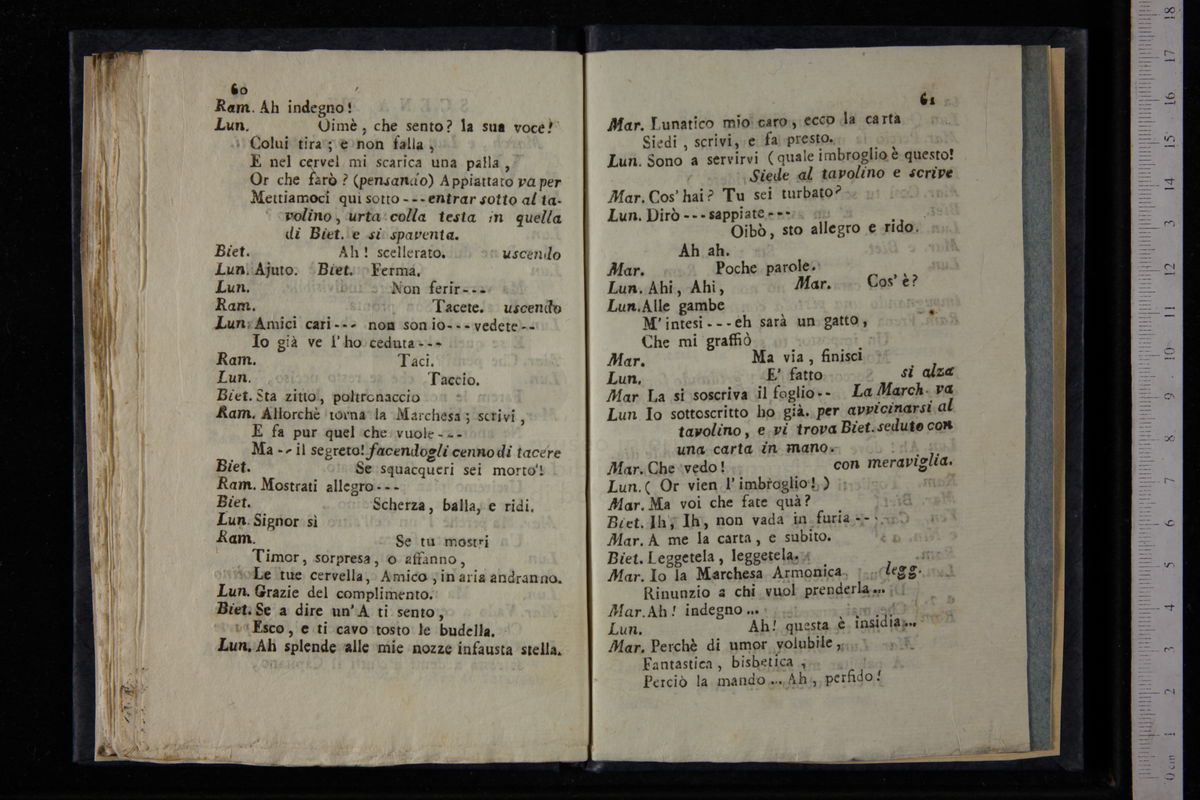 60
Ram. Ah indegno!
Lun. Oimè, che sento? la sua voce!
Colui tira; e non falla,
E nel cervel mi scarica una palla,
Or che farò? (pensando) Appiattato va per
Mettiamoci qui sotto --- entrar sotto al ta-
volino, urta colla testa in quella
di Biet. e si spaventa.
Biet. Ah! scellerato. uscendo
Lun. Ajuto. Biet. Ferma.
Lun. Non ferir---
Ram. Tacete. uscendo
Lun. Amici cari --- non son io --- vedete --
Io già ve l'ho ceduta ---
Ram. Taci.
Lun. Taccio.
Biet. Sta zitto, poltronaccio
Ram. Allorchè torna la Marchesa; scrivi,
E fa pur quel che vuole ---
Ma -- il segreto! facendogli cenno di tacere
Biet. Se squacqueri sei morto!
Ram. Mostrati allegro ---
Biet. Scherza, balla, e ridi.
Lun. Signor sì
Ram. Se tu mostri
Timor, sorpresa, o affanno,
Le tue cervella, Amico, in aria andranno.
Lun. Grazie del complimento.
Biet. Se a dire un' A ti sento,
Esco, e ti cavo tosto le budella.
Lun. Ah splende alle mie nozze infausta stella.
61
Mar. Lunatico mio caro, ecco la carta
Siedi, scrivi, e fa presto.
Lun. Sono a servirvi (quale imbroglio è questo!
Siede al tavolino e scrive
Mar. Cos' hai? Tu sei turbato?
Lun. Dirò --- sappiate ---
Oibò, sto allegro e rido.
Ah ah.
Mar. Poche parole.
Lun. Ahi, Ahi, Mar. Cos' è?
Lun. Alle gambe
M' intesi --- eh sarà un gatto,
Che mi graffiò
Mar. Ma via, finisci
Lun. E' fatto si alza
Mar La si soscriva il foglio -- La March. va
Lun Io sottoscritto ho già. per avvicinarsi al
tavolino, e vi trova Biet. seduto con
una carta in mano.
Mar. Che vedo! con meraviglia.
Lun. ( Or vien l' imbroglio! )
Mar. Ma voi che fate quà?
Biet. Ih, Ih, non vada in furia --
Mar. A me la carta, e subito.
Biet. Leggetela, leggetela.
Mar. Io la Marchesa Armonica legg.
Rinunzio a chi vuol prenderla...
Mar. Ah! indegno ...
Lun. Ah! questa è insidia...
Mar. Perchè di umor volubile,
Fantastica, bisbetica,
Perciò la mando ... Ah, perfido!
0 cm 1 2 3 4 5 6 7 8 9 10 11 12 13 14 15 16 17 18